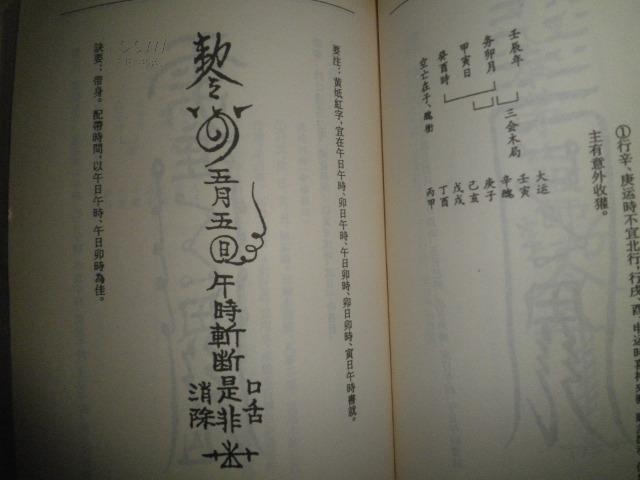 ①行辛、庚运時不宜北行，行戌、酉、申运時
主有意外收獲。
壬辰年
务卯月
甲寅日
癸酉時
空亡在子、醜衝
三会木局
大运
壬寅
辛醜
庚子
己亥
戊戌
丁酉
丙甲
要注：黄纸紅字，宜在午日午時、卯日午時、午日卯時、卯日卯時、寅日午時書就。
敕令
五月五日午時斬断
口舌
是非
消除
訣要：带身。配帶時間，以午日午時、午日卯時為佳。